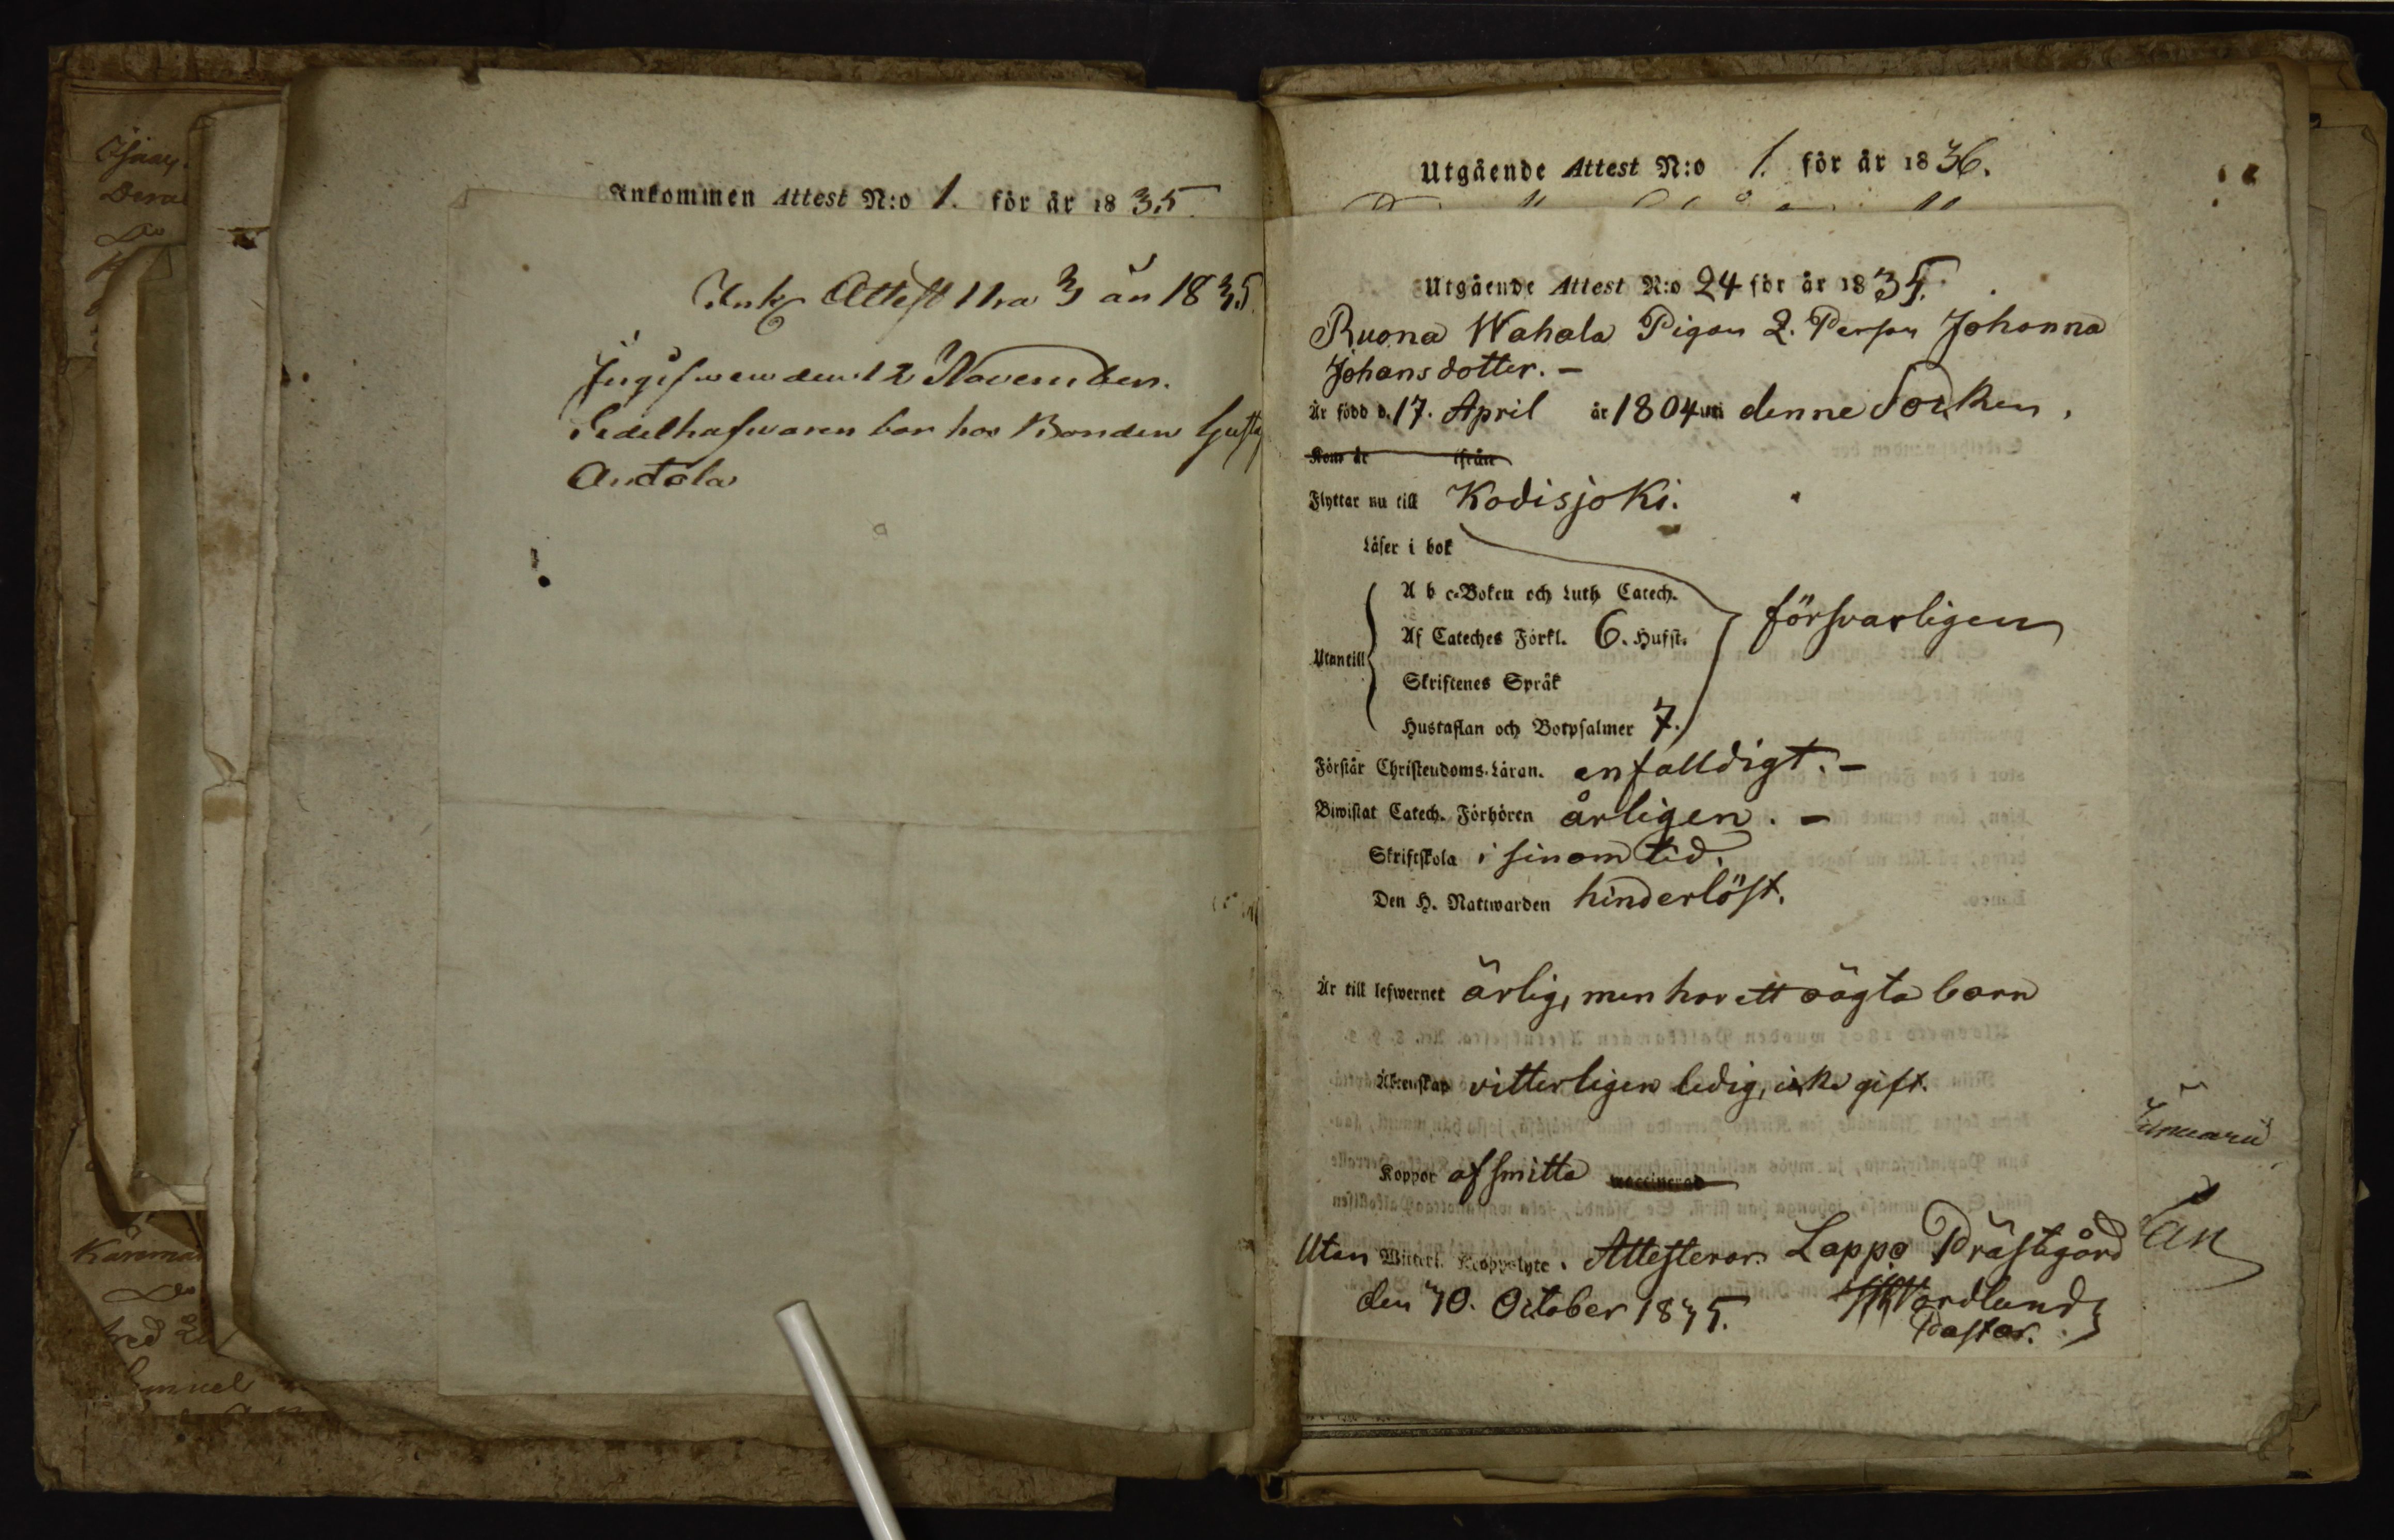 Ankommen Attest N:o 1. för år 1835.
Ank Attest Nro 3 år 1835.
Ingifwen den 12 November.
Sedelhafwaren bor hos Bonden Gust
Anttola
Utgående Attest N:o 1. för år 1836.
Utgående Attest N:o 24 för år 1835.
Ruona Wahala Pigan Q. Person Johanna
Johansdotter. –
Är född d. 17. April år 1804 uti denne Socken.
Kom år ifrån
Flyttar nu till Kodisjoki.
Läser i bok
A b c-Boken och Luth Catech.
försvarligen
Af Cateches Förkl. 6. Hufst.
Utantill
Skriftenes Språk
Hustaflan och Botpsalmer 7.
Förstår Christendoms-Läran. enfalldigt. –
Biwistat Catech. Förhören årligen. –
Skriftskola i sinom tid.
Den H. Nattwarden hinderlöst.
Är till lefwernet ärlig, men har ett oägta barn
Äktenskap vitterligen ledig, icke gift.
Januarii
Koppor af smitta waccinerad
Utan Witterl. Attesterar. Lappo Prästegård
den 30. October 1835. Nordlund
Pastor.
Isaac
Samuel